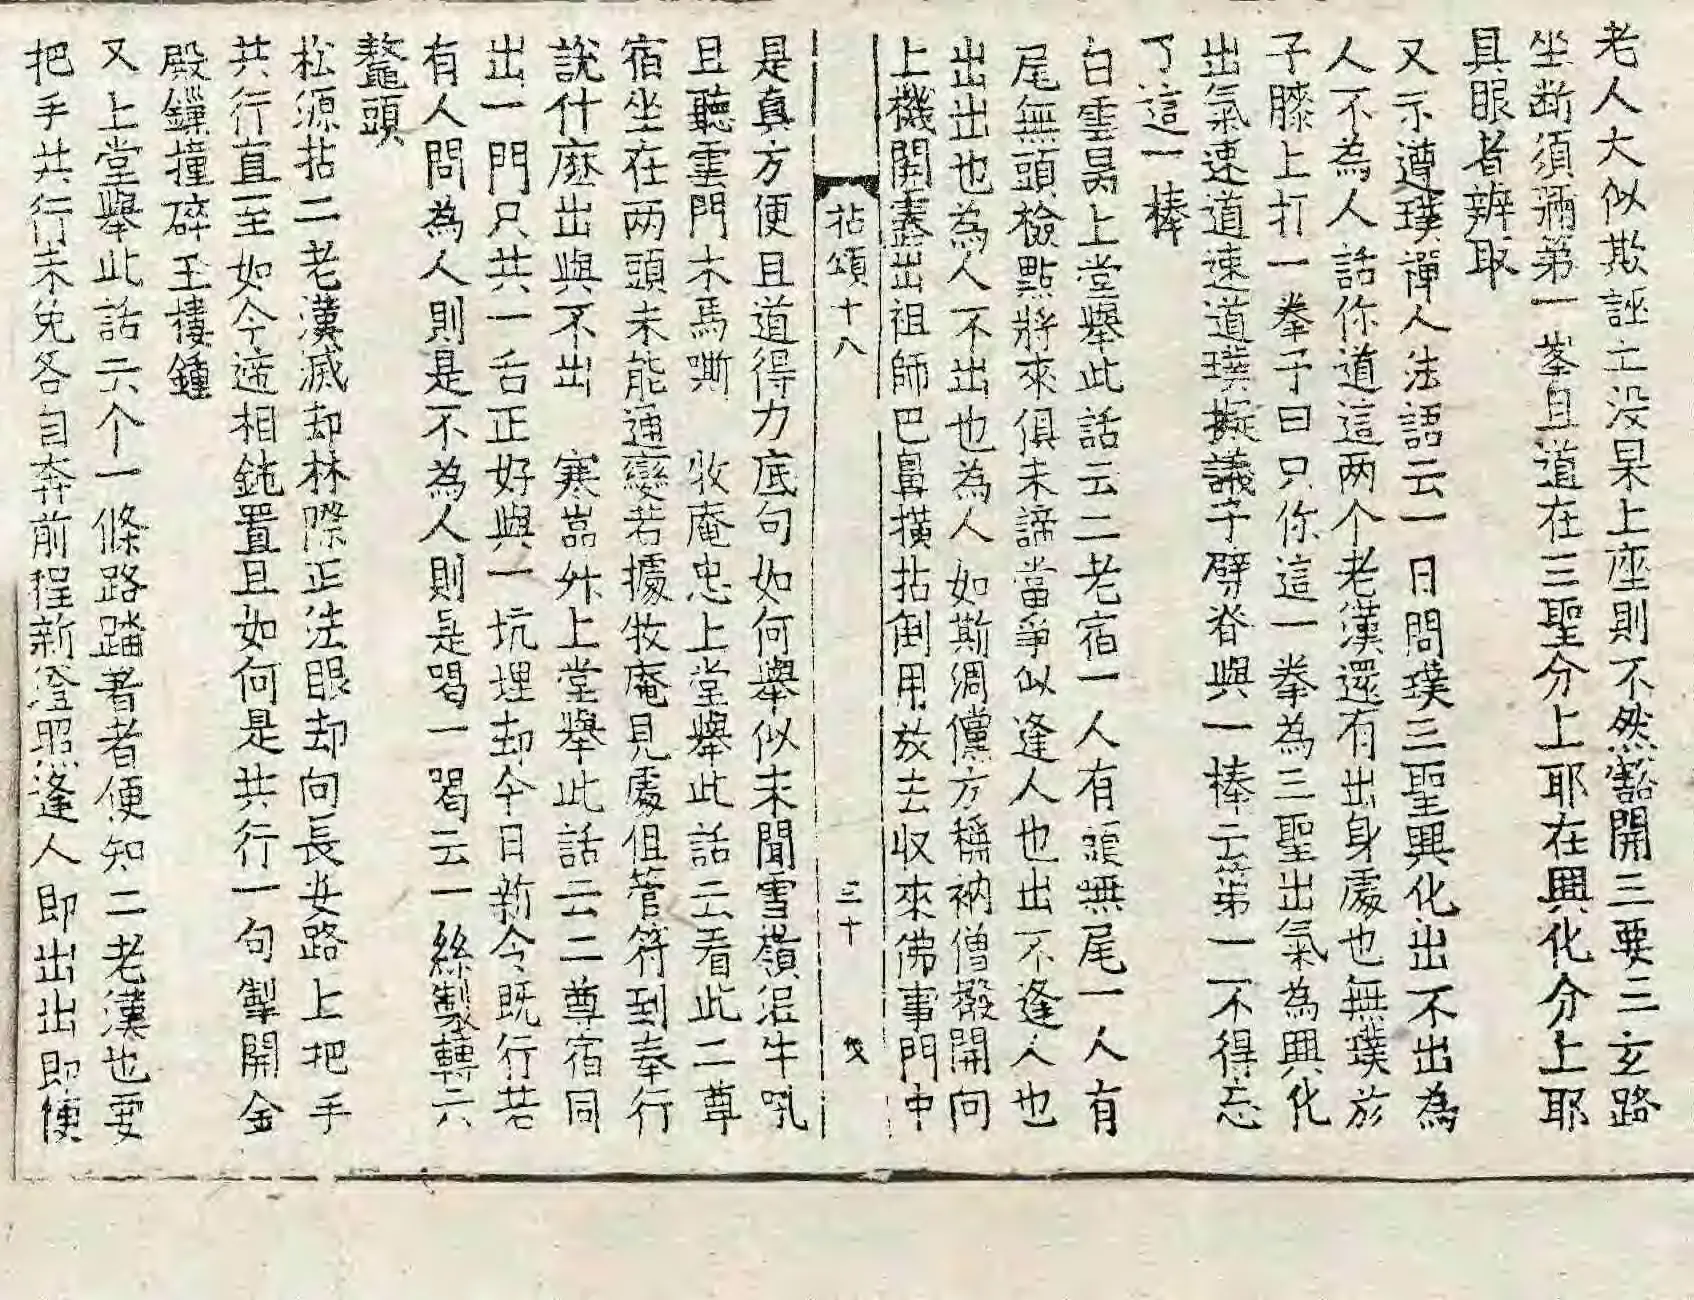 老人大似欺誣亡没杲上座則不然豁開三要三玄路
坐断須彌第一峯且道在三聖分上耶在興化分上耶
具眼者辨取
又示遵璞禪人法語云一日問璞三聖興化出不出為
人不為人話你道這两个老漢還有出身處也無璞於
子膝上打一拳予曰只你這一拳為三聖出氣為興化
出氣速道速道璞擬議予劈脊與一棒云第一不得忘
了這一棒
白雲昺上堂舉此話云二老宿一人有頭無尾一人有
尾無頭檢點將來俱未諦當爭似逢人也出不逢人也
出出也為人不出也為人如斯倜儻方稱衲僧撥開向
上機関裏出祖師巴鼻横拈倒用放去収來佛事門中
拈頌十八 三十
是真方便且道得力底句如何舉似未聞雪嶺泥牛吼
且聽雲門木馬嘶 牧庵忠上堂舉此話云看此二尊
宿坐在两頭未能通變若據牧庵見處但管符到奉行
說什麽出與不出 寒嵓升上堂舉此話云二尊宿同
出一門只共一舌正好與一坑埋却今日新令既行若
有人問為人則是不為人則是喝一喝云一絲掣轉六
鼇頭
松源拈二老漢滅却林際正法眼却向長安路上把手
共行直至如今遞相鈍置且如何是共行一句掣開金
殿鏁撞碎玉樓鍾
又上堂舉此話云个一條路踏著者便知二老漢也要
把手共行未免各自奔前程新澄照逢人即出出即便